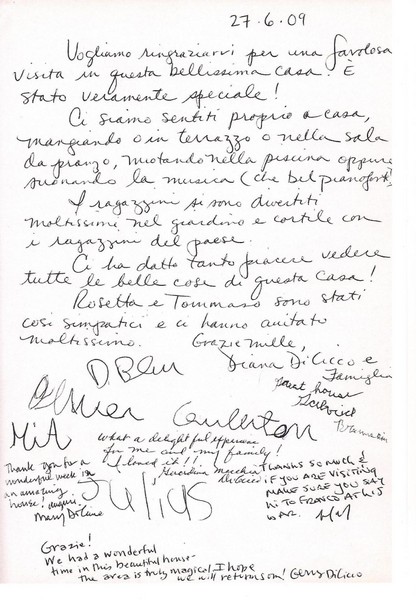 27.6.09
Vogliamo ringraziarvi per una favolosa
visita in questa bellissima casa. È
stato veramente speciale!
Ci siamo sentiti proprio a casa,
mangiando o in terrazzo o nella sala
da pranzo, nuotando nella piscina oppure
suonando la musica (che bel pianoforte)
I ragazzini si sono divertiti
moltissimi nel giardino e cortile con
i ragazzini del paese.
Ci ha datto tanto piacere vedere
tutte le belle cose di questa Casa!
Rosetta e Tommaso sono stati
così simpatici e ci hanno aiutato
moltissimo. Grazie mille,
Diana DiCicco e
Famiglia
D. Blum
great house
Gabriel
Oliver
MiA
what a delightful experience
for me and my family!
I loved it!
DiCicco
Thank you for a
wonderful week in
an amazing
house!
Mary DiCicco
Julius
THANKS SO MUCH!
IF YOU ARE VISITING
MAKE SURE YOU SAY
HI TO FRANCO AT HIS
BAR.
Grazie!
We had a wonderful
time in this beautiful house-
the area is truly magical. I hope
we will return soon! Gerry DiCicco